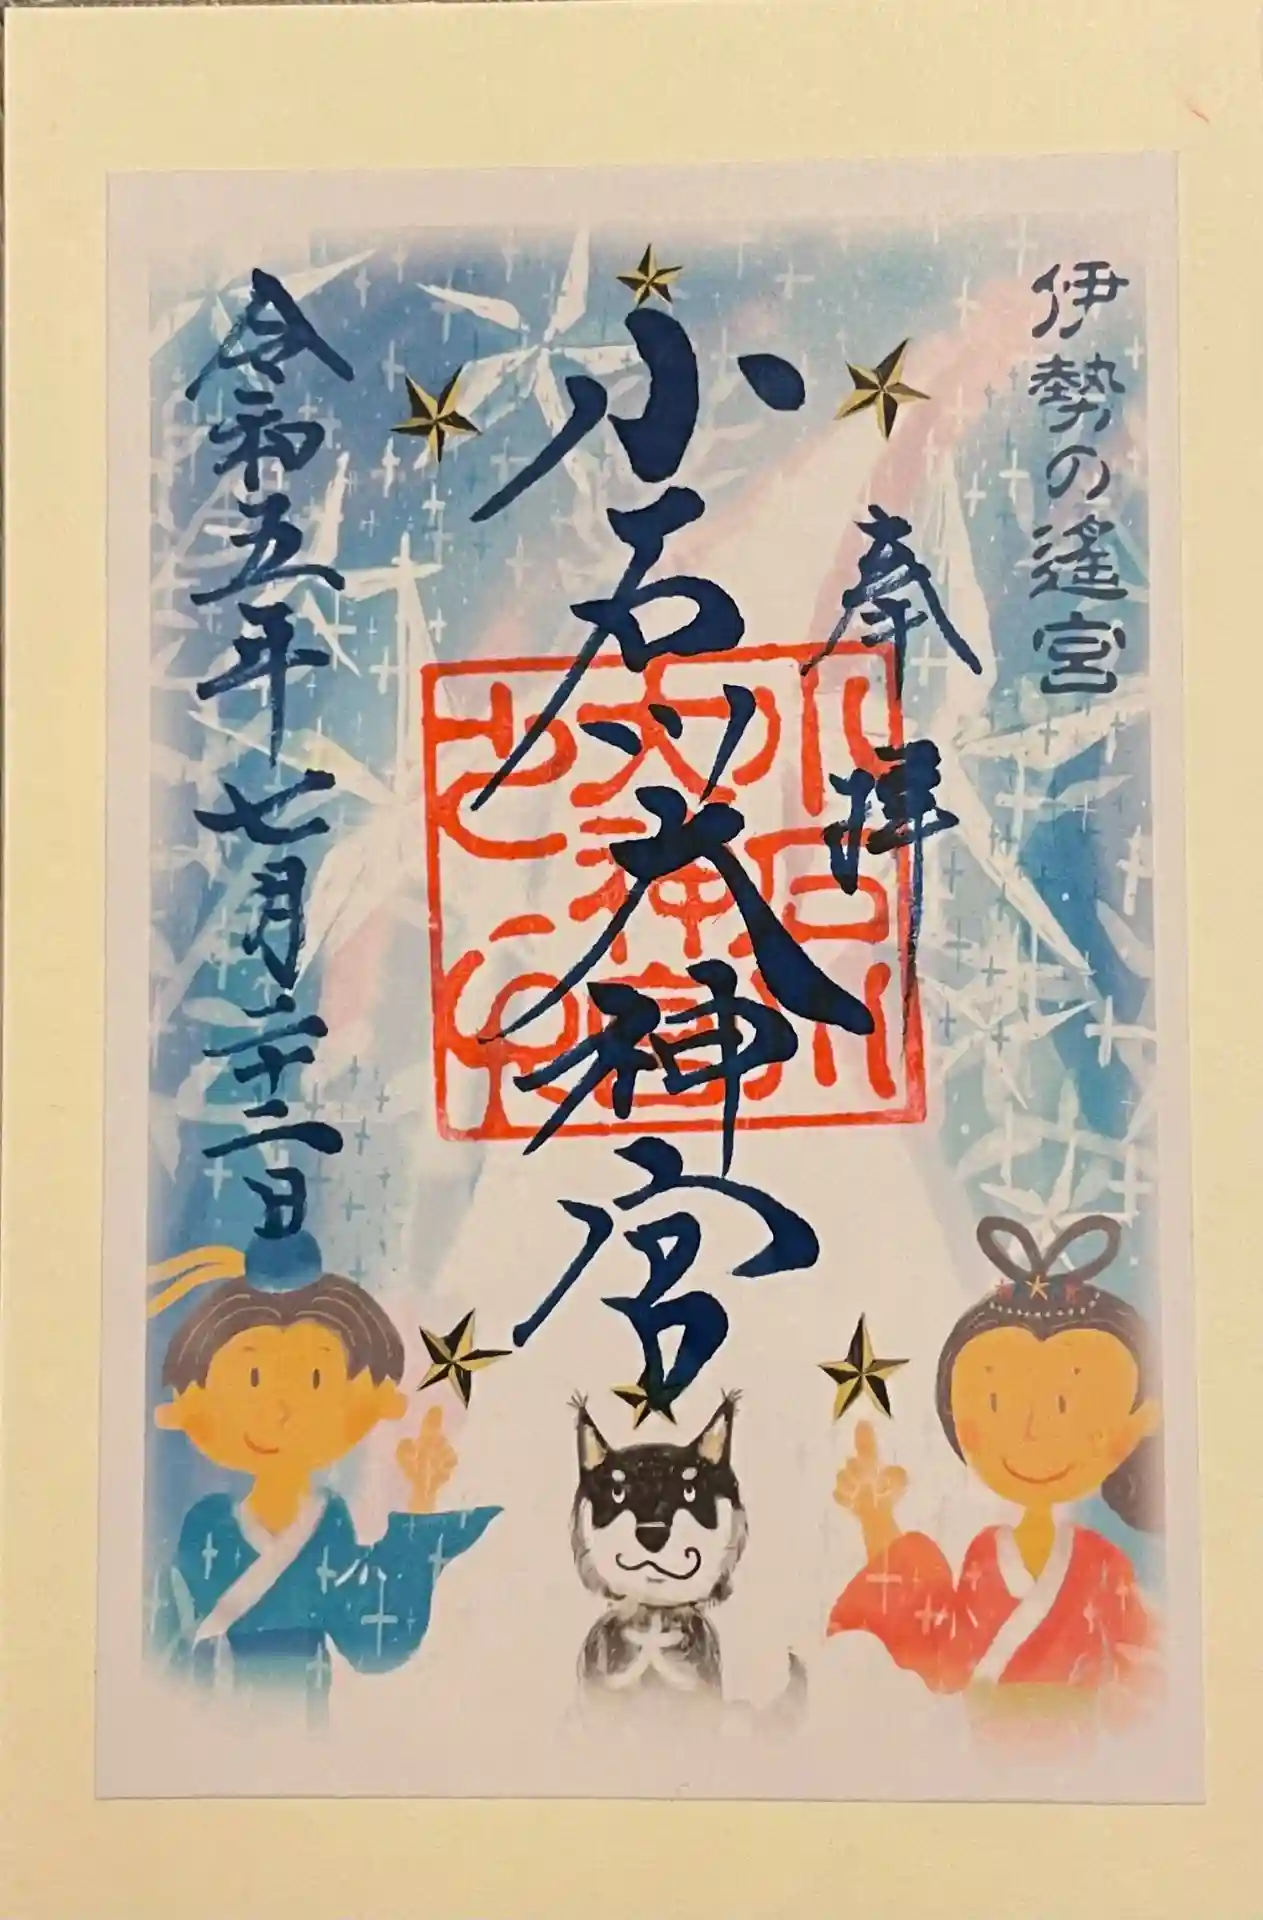 伊勢の遙宮
奉拝
小石川大神宮
小石川
大神宮
之印
令和五年七月二十二日